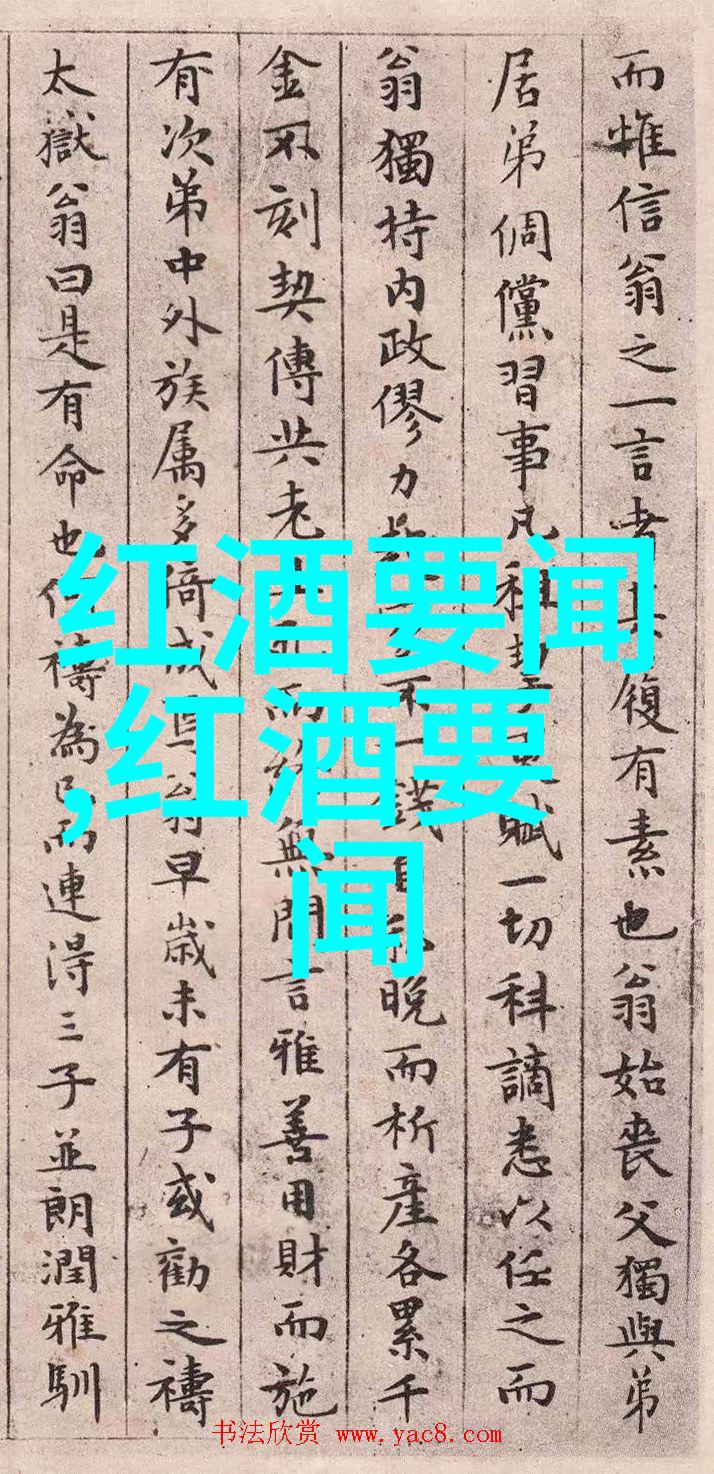 而惟信翁之一言者其履有素也翁始丧父獨與弟
居弟倜儻習事凡租賦一切科謫悉以任之而
翁獨持内政僇力不一錢晚而析産各累千
金不刻契傳共老無間言雅善用財而施
有次第中外族属多倚成翁早歳未有子或勸之禱
太嶽翁曰是有命也何禱為已而連得三子並朗潤雅馴
红酒要闻
,红酒要
闻
书法欣赏 www.yac8.com